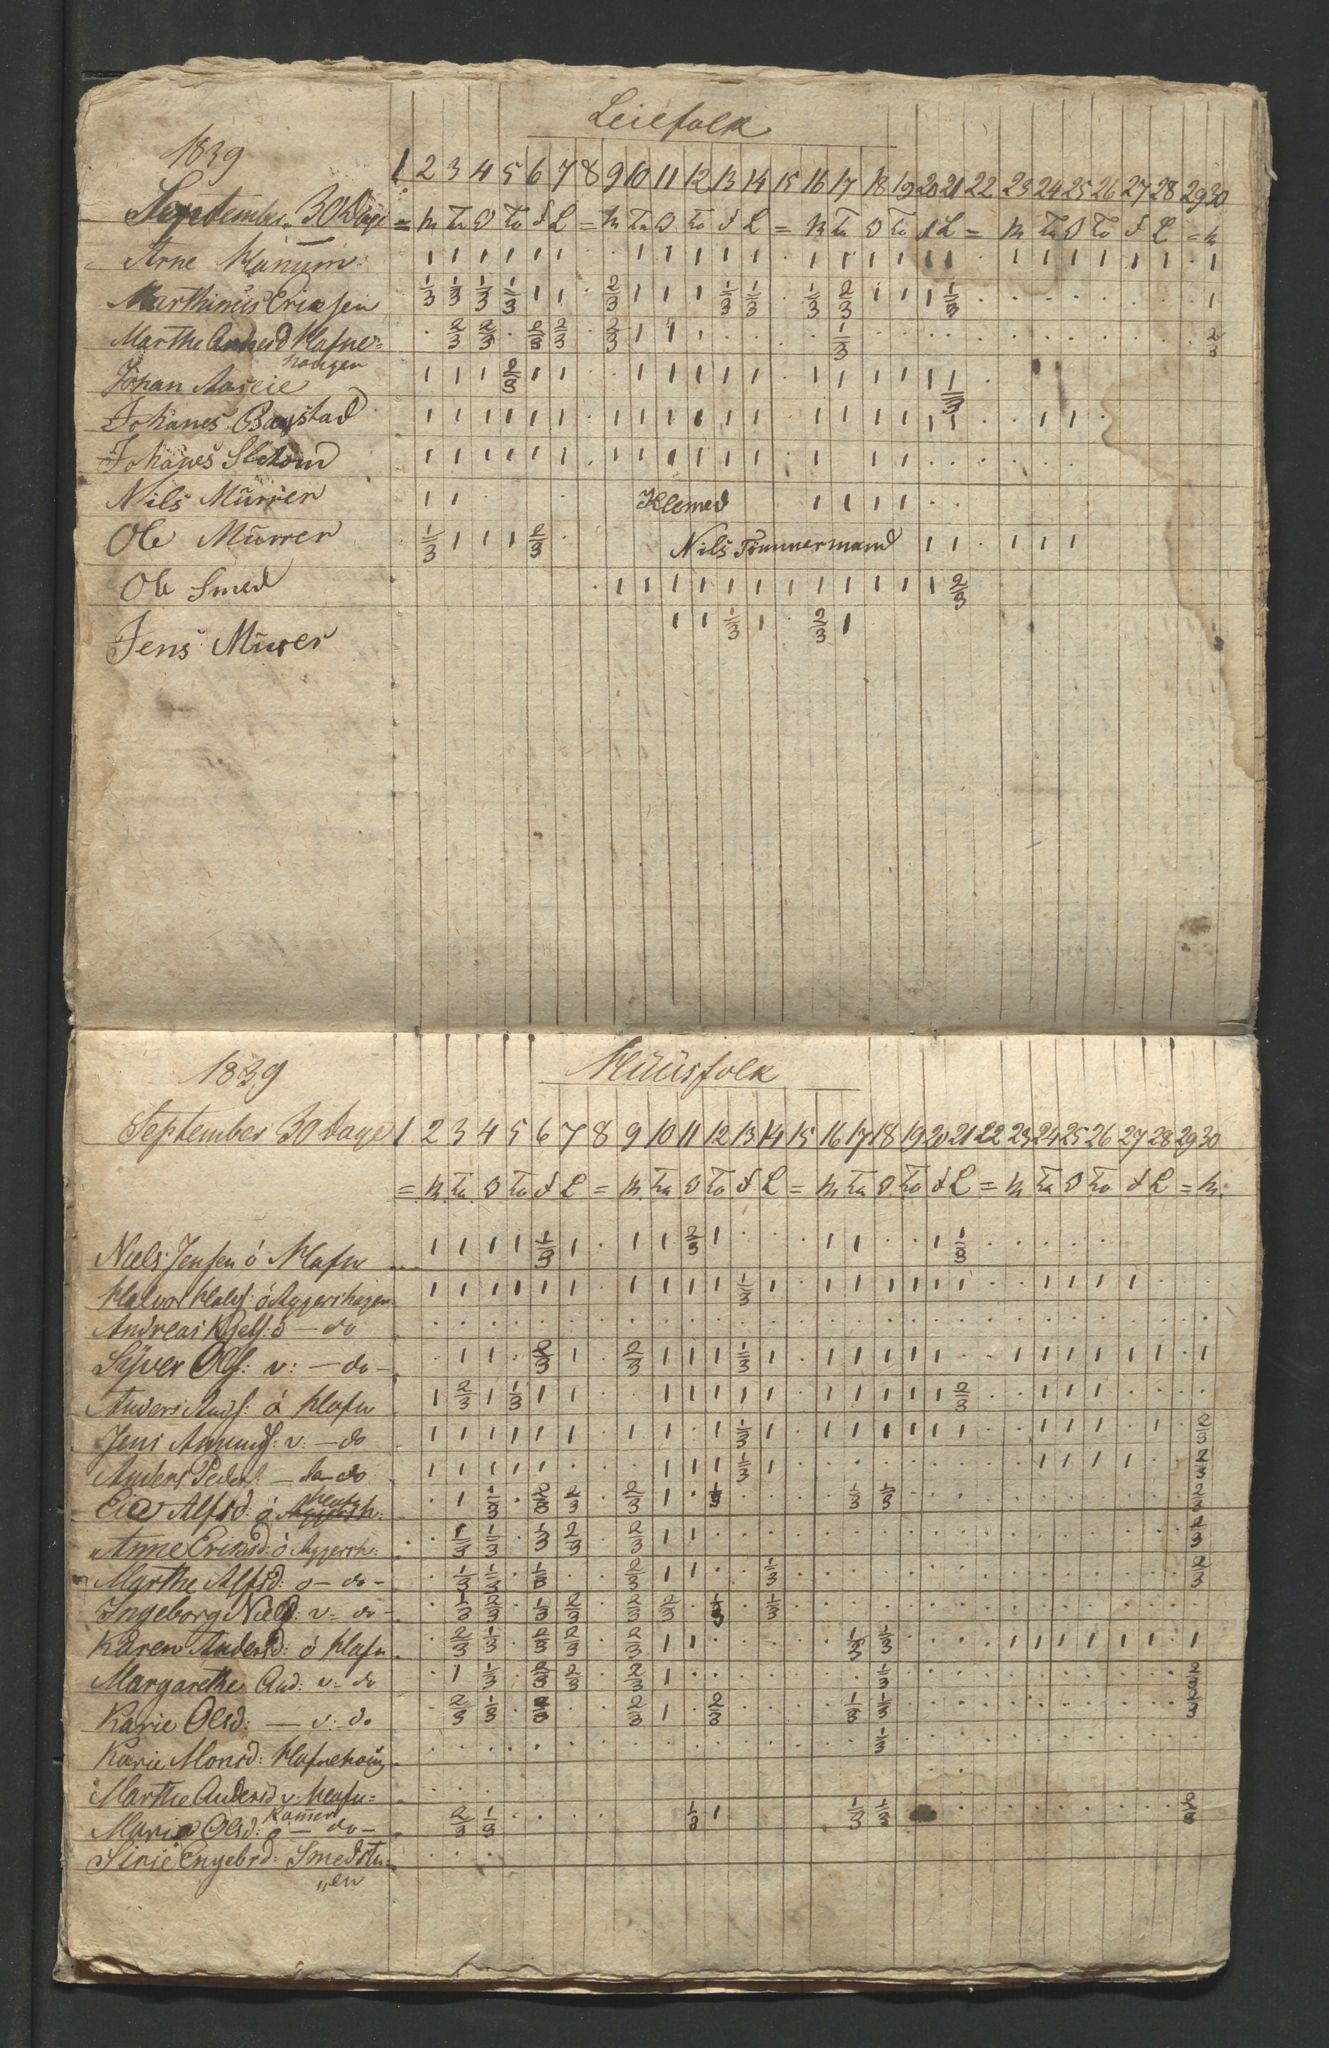 Leiefolk
1839
1 2 3 4 5 6 7 8 9 10 11 12 13 14 15 16 17 18 19 20 21 22 23 24 25 26 27 28 29 30
September 30 Dage = M Ti O To f L = M Ti O To f L = M Ti O To f L = M Ti O To f L = M
Arne 1 1 1 1 1 1 . 1 1 1 1 1 . 1 1 1 1 1 1 . 1 1 1 1 1 1 . 1
Marthinus Ericsen 1/3 1/3 1/3 1/3 1 1 . 2/3 1 1 1 1/3 1/3 . 1/3 2/3 1 1 1 1/3 . . . . . . . . 1
Marthe Anders Hafne= . 2/3 2/3 . 2/3 2/3 . 2/3 1 1 1 . . . . 1/3 . . . . . . . . . . . . 2/3
haugen
Johan 1 1 1 2/3 1 1 . . 1 1 1 1 1 . 1 1 1 1 1 1/3 .
Johanes Baystad 1 1 1 1 1 1 . 1 1 1 1 1 1 . 1 1 1 1 1 1 . . 1 1 .
Johanes 1 1 1 1 1 1 . 1 1 1 1 1 1 . 1 . 1 1 . . . .
Nils Mürrer 1 1 . . . Klemed 1 1 1 1 . .
Ole Mürrer 1/3 1 1 1 2/3 . Nils Tømmermand 1 1 . 1 1 1
Ole Smed . 1 1 1 1 1 1 1 1 1 1 1 1 2/3
Jens Mürer 1 1 1/3 1 . 2/3 1
1839
Huusfolk
September 30 Dage 1 2 3 4 5 6 7 8 9 10 11 12 13 14 15 16 17 18 19 20 21 22 23 24 25 26 27 28 29 30
= M Ti O To f L = M Ti O To f L = M Ti O To f L = M Ti O To f L = M
Niels Jensen ó Hafn 1 1 1 1 1/3 1 . 1 1 2/3 1 . . . 1 1 . . 1 1/3 . . . . .
Halvor Halvs: ó Aggershagen 1 1 1 1 1 1 . 1 1 1 1 1/3 1 . 1 1 1 1 1 1 . . 1 1 1 1 . .
Andreas Kjels: ó — do . . . . . . . . . . . . . . . . . . . . . . . . . . . . .
Syver Ols: v: — do — . 1 1 . 2/3 1 . 2/3 1 1 1 1/3 1 . 1 1 1 1 1 . . 1 1 1 1 1 1 . 1
Anders Ands: ó Hafn 1 2/3 1 1/3 1 1 . . 1 1 1 1 1 . 1 1 1 1 1 2/3 . . 1 1 1 . . . .
Jens Amunds: v: — do 1 1 1 1 1 1 . 1 1 1 . 1 1/3 1 . 1 1 1 1 1 1 . . 1 1 1 . 1 . 2/3
Anders Peders: — do — do 1 1 1 1 1 . . . 1 1 1 1/3 1 . . . . . . . . . 1 1 1 1 . . 2/3
Alfsd: ó . 1 1/3 . 2/3 2/3 . 2/3 1 . 1/3 . . . . 1/3 1/3 . . . . . . . . . . . 2/3
Anne Ericsd: ó Aggersh: . 1/3 1/3 . 1/3 2/3 . 2/3 1 1 . . . . . . . . . . . . . . . . . . 2/3
Marthe Alfsd: ó — do — . 1/3 1/3 . 1/3 . . 2/3 1 1 . . 1/3 . . . . . . . . . . . . . . . 2/3
Ingeborg Nielsd: v — do — . 1/3 2/3 . 1/3 2/3 . 2/3 2/3 . 1/3 . 1/3 . . . . . . . . . . . . . . . .
Karen Andersd: ó Hafn . 2/3 1/3 . 2/3 2/3 . 2/3 1 1 . . . . . 1/3 1/3 . . . . 1 1 1 1 1 1 . 1
Margarethe And: v: do . 1 1/3 . 2/3 2/3 . 2/3 1 . . . . . . . 1/3 . . . . . . . . . . . 2/3
Karie Olsd: — v: do . 2/3 1/3 . 2/3 . . 2/3 1 . 2/3 . . . . 1/3 1/3 . . . . . . . . . . . 2/3
Karie Monsd: Hafnehaug . . . . . . . . . . . . . . . . 1/3 . . . . . . . . . . . .
Marthe Andersd v: Hafn= . . .
Kamer
Maria Olsd: ó — do — . 2/3 1/3 . . . . . . 1/3 1 1/3 1/3 . . . . . . . . . . 2/3
Sirie Engebrd: Smedstu= . . .
„en